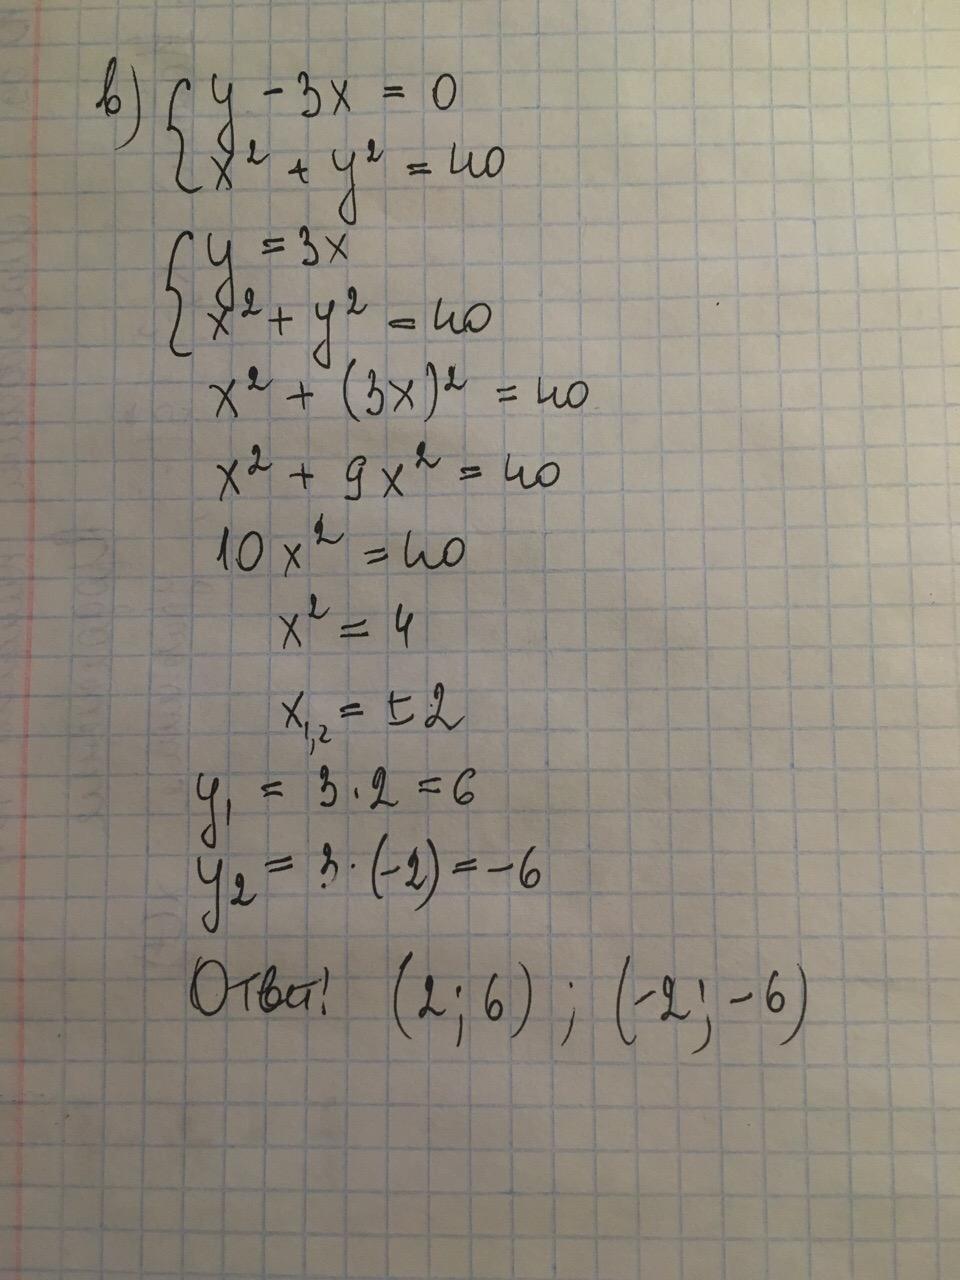 в) { y - 3x = 0
x² + y² = 40
{ y = 3x
x² + y² = 40
x² + (3x)² = 40
x² + 9x² = 40
10x² = 40
x² = 4
x₁,₂ = ±2
y₁ = 3 · 2 = 6
y₂ = 3 · (-2) = -6
Ответ: (2; 6) ; (-2; -6)